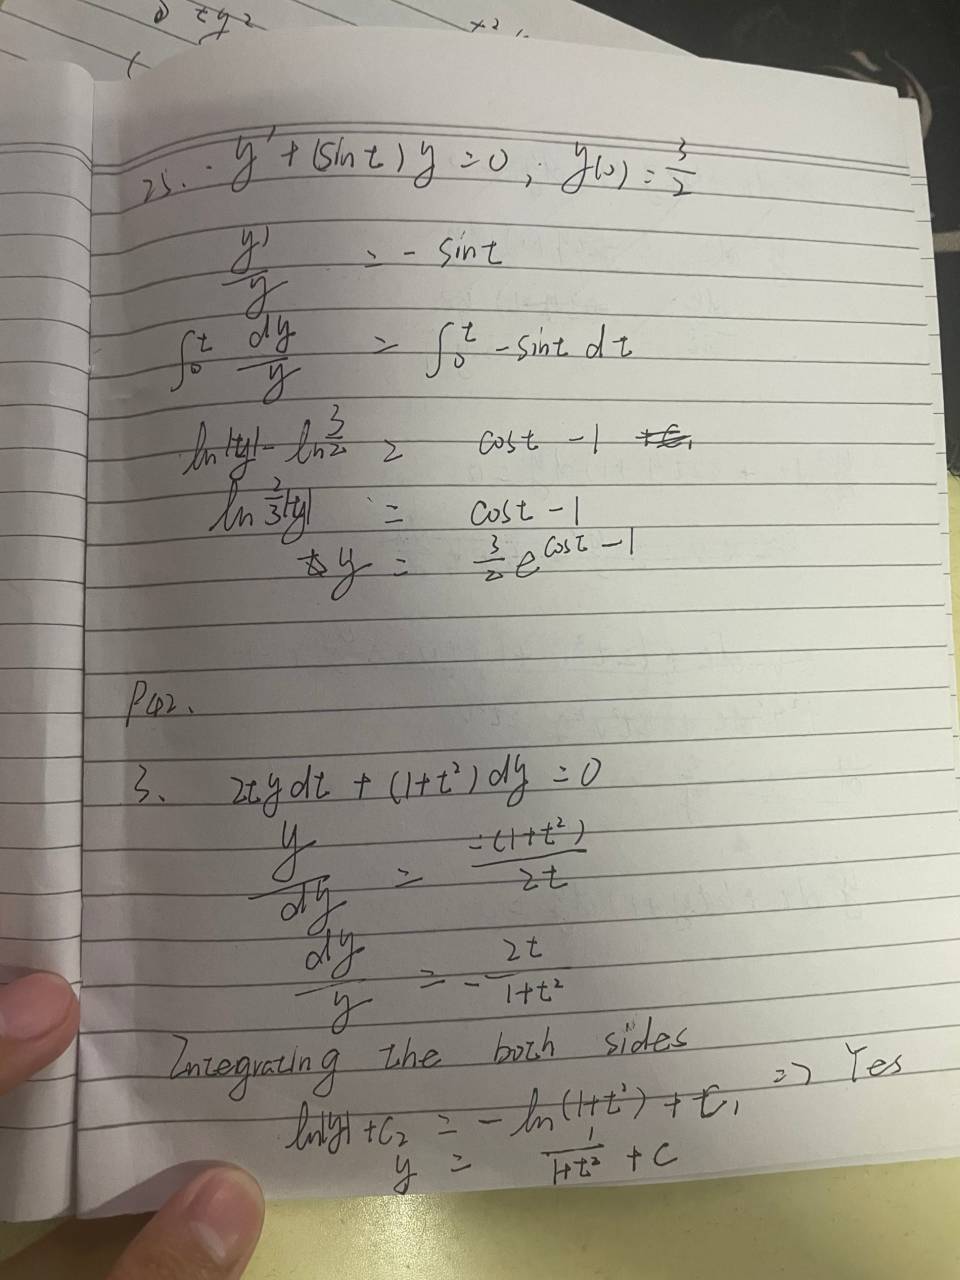 t y 2
x2
25. y' + (sin t) y = 0, y(0) = 3/2
y'/y = - sin t
∫₀ᵗ dy/y = ∫₀ᵗ - sin t dt
ln|y| - ln 3/2 = cos t - 1
ln 2/3|y| = cos t - 1
y = 3/2 e^(cos t - 1)
P42.
3. 2ty dt + (1+t²) dy = 0
y/dy = -(1+t²)/2t
dy/y = - 2t/1+t²
Integrating the both sides
ln|y| + C₂ = - ln(1+t²) + C₁ => Yes
y = 1/1+t² + C